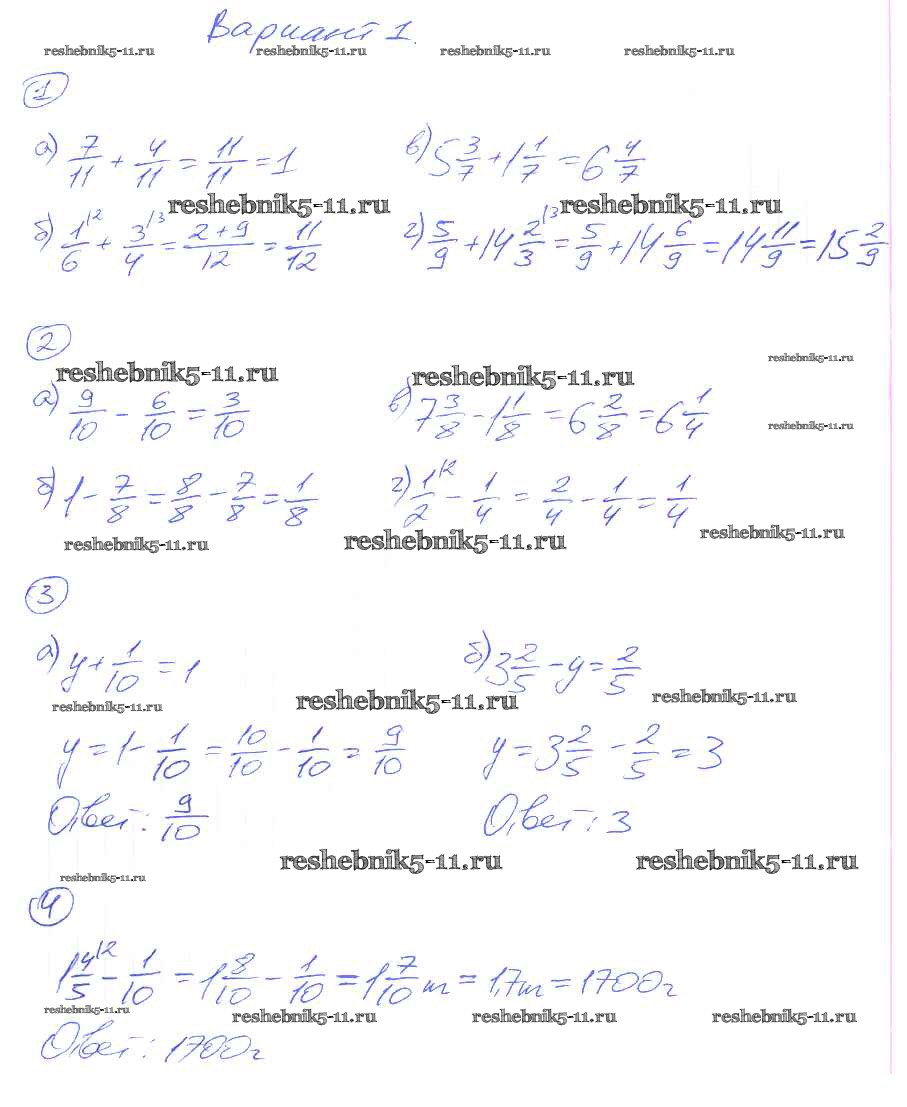 Вариант 1.
reshebnik5-11.ru reshebnik5-11.ru reshebnik5-11.ru reshebnik5-11.ru
1
а) 7/11 + 4/11 = 11/11 = 1 в) 5 3/7 + 1 1/7 = 6 4/7
reshebnik5-11.ru reshebnik5-11.ru
б) 1/6 |2 + 3/4 |3 = 2+9/12 = 11/12 г) 5/9 + 14 2/3 |3 = 5/9 + 14 6/9 = 14 11/9 = 15 2/9
2
reshebnik5-11.ru reshebnik5-11.ru reshebnik5-11.ru
а) 9/10 - 6/10 = 3/10 в) 7 3/8 - 1 1/8 = 6 2/8 = 6 1/4
reshebnik5-11.ru
б) 1 - 7/8 = 8/8 - 7/8 = 1/8 г) 1/2 |2 - 1/4 = 2/4 - 1/4 = 1/4
reshebnik5-11.ru reshebnik5-11.ru reshebnik5-11.ru
3
а) y + 1/10 = 1 б) 3 2/5 - y = 2/5
reshebnik5-11.ru reshebnik5-11.ru reshebnik5-11.ru
y = 1 - 1/10 = 10/10 - 1/10 = 9/10 y = 3 2/5 - 2/5 = 3
Ответ: 9/10 Ответ: 3
reshebnik5-11.ru reshebnik5-11.ru reshebnik5-11.ru
4
1 4/5 |2 - 1/10 = 1 8/10 - 1/10 = 1 7/10 т = 1,7т = 1700г
reshebnik5-11.ru reshebnik5-11.ru reshebnik5-11.ru reshebnik5-11.ru
Ответ: 1700г